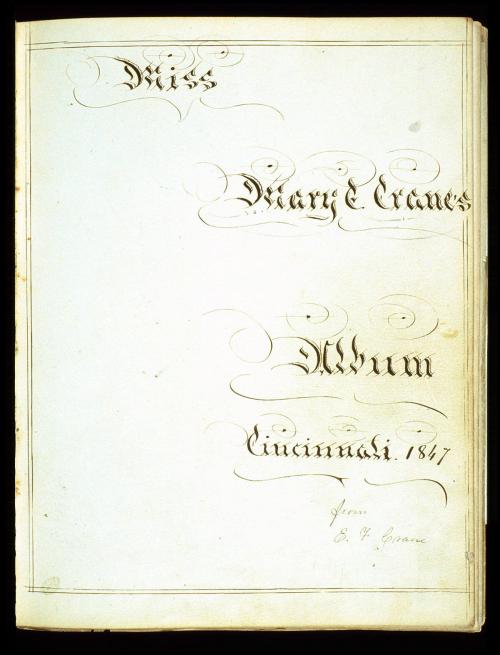 Miss
Mary E. Cranes
Album
Cincinnati. 1847
from
E. F. Crane